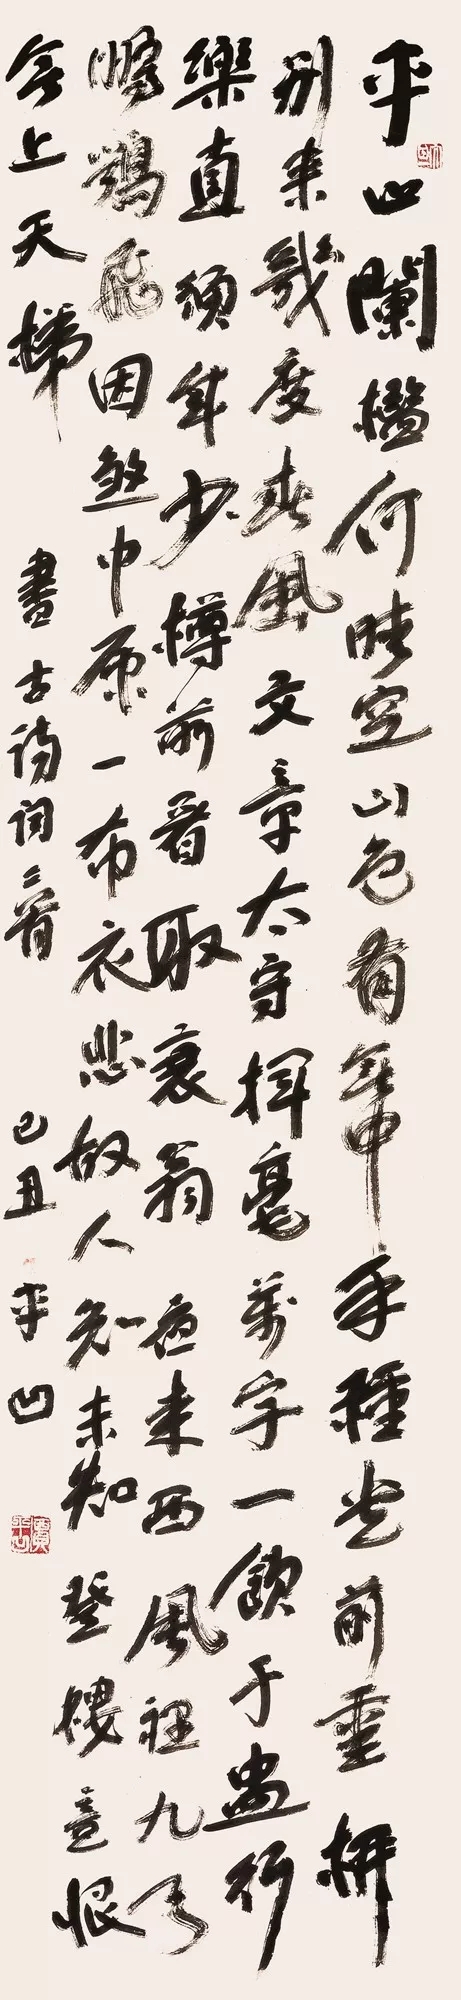 平山闌檻倚晴空山色有無中手種堂前垂柳
別來幾度春風文章太守揮毫萬字一飲千盅行
樂直須年少樽前看取衰翁夜來西風裡九天
鵰鶚飛困煞中原一布衣悲故人知未知登樓意恨
無上天梯 書古詩詞二首 己丑 平凹